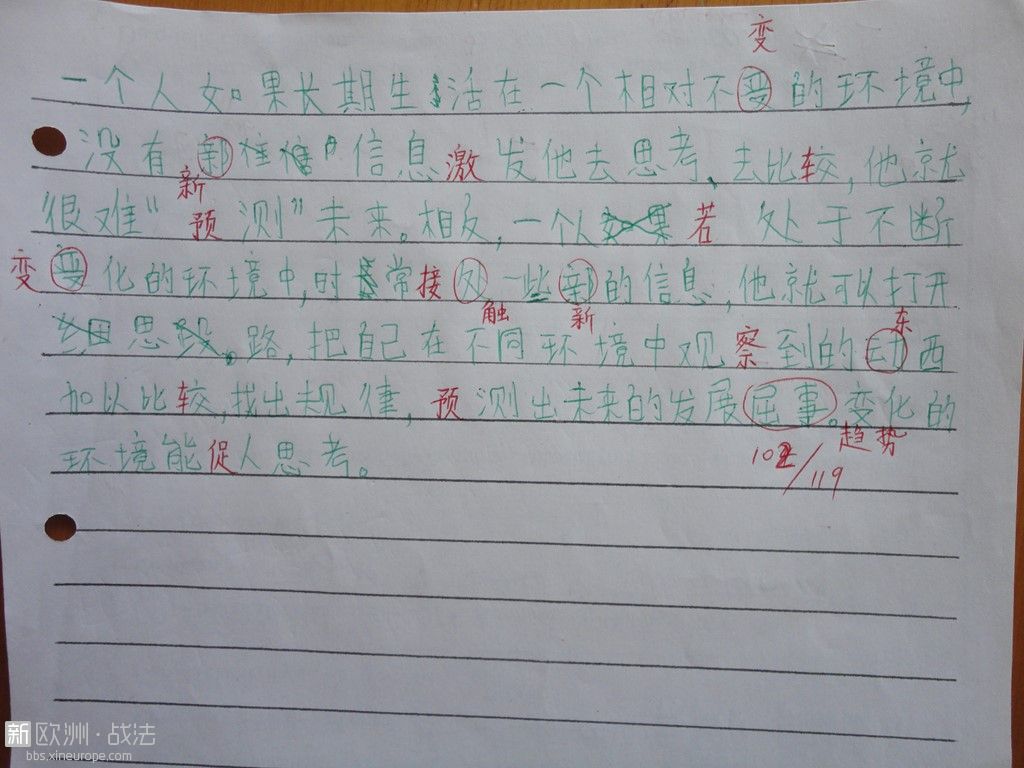 变
一个人如果长期生活在一个相对不变的环境中,
没有 信息激发他去思考、去比较,他就
新
很难“预测”未来。相反,一个人若处于不断
变 化的环境中,时常接处一些 的信息,他就可以打开
触 新 东
思路,把自己在不同环境中观察到的动西
加以比较,找出规律,预测出未来的发展屈事。变化的
趋势
环境能促人思考。
102/119
新欧洲·战法
bbs.xineurope.com